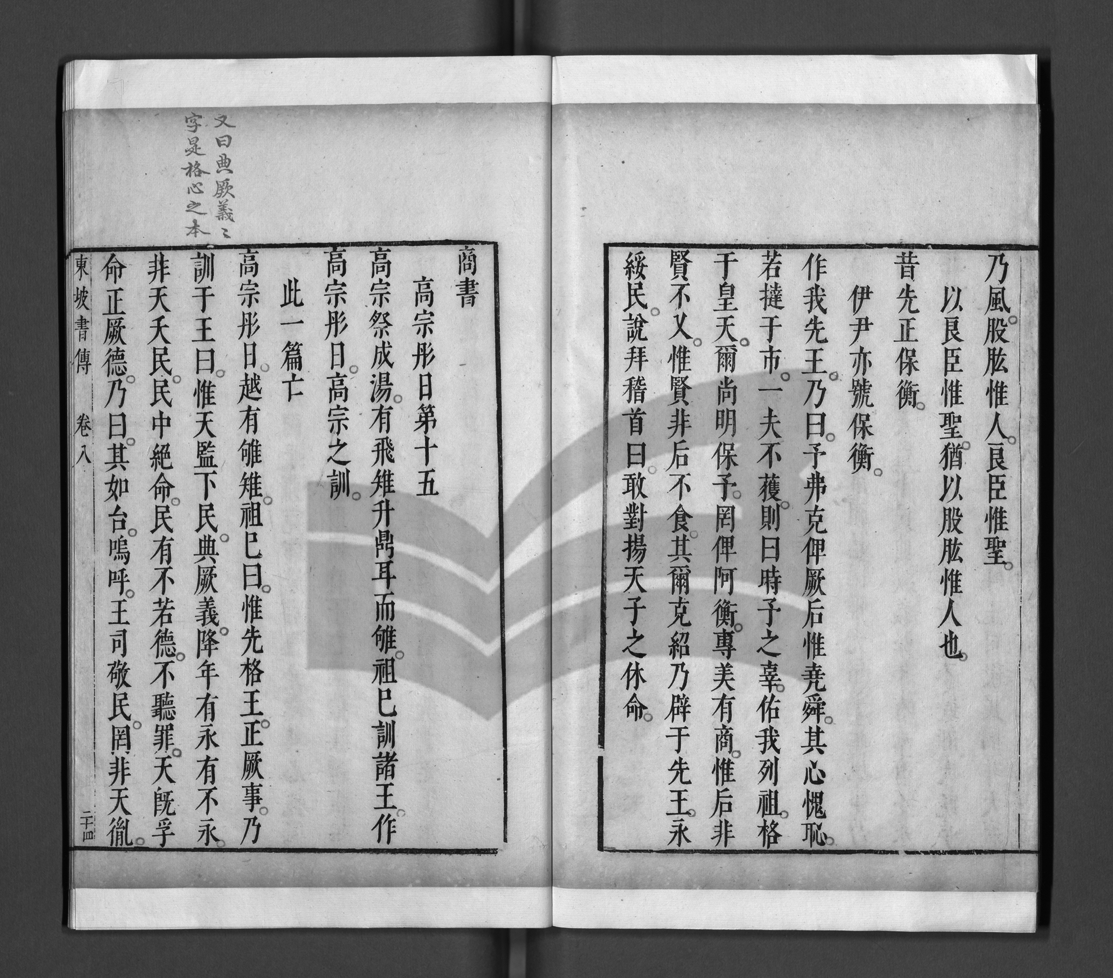 乃風。股肱惟人。良臣惟聖。
以良臣惟聖。猶以股肱惟人也。
昔先正保衡。
伊尹亦號保衡。
作我先王。乃曰。予弗克俾厥后惟堯舜。其心愧恥。
若撻于市。一夫不獲。則曰時予之辜。佑我列祖。格
于皇天。爾尚明保予。罔俾阿衡。專美有商。惟后非
賢不乂。惟賢非后不食。其爾克紹乃辟于先王。永
綏民。說拜稽首曰。敢對揚天子之休命。
商書
高宗彤日第十五
高宗祭成湯。有飛雉升鼎耳而雊。祖巳訓諸王。作
高宗彤日。高宗之訓。
此一篇亡
高宗彤日。越有雊雉。祖巳曰。惟先格王。正厥事。乃
訓于王曰。惟天監下民。典厥義。降年有永有不永。
非天夭民。民中絕命。民有不若德。不聽罪。天旣孚
命正厥德。乃曰。其如台。嗚呼。王司敬民。罔非天胤。
東坡書傳 卷八 二十四
又曰典厥義〻
字是格心之本